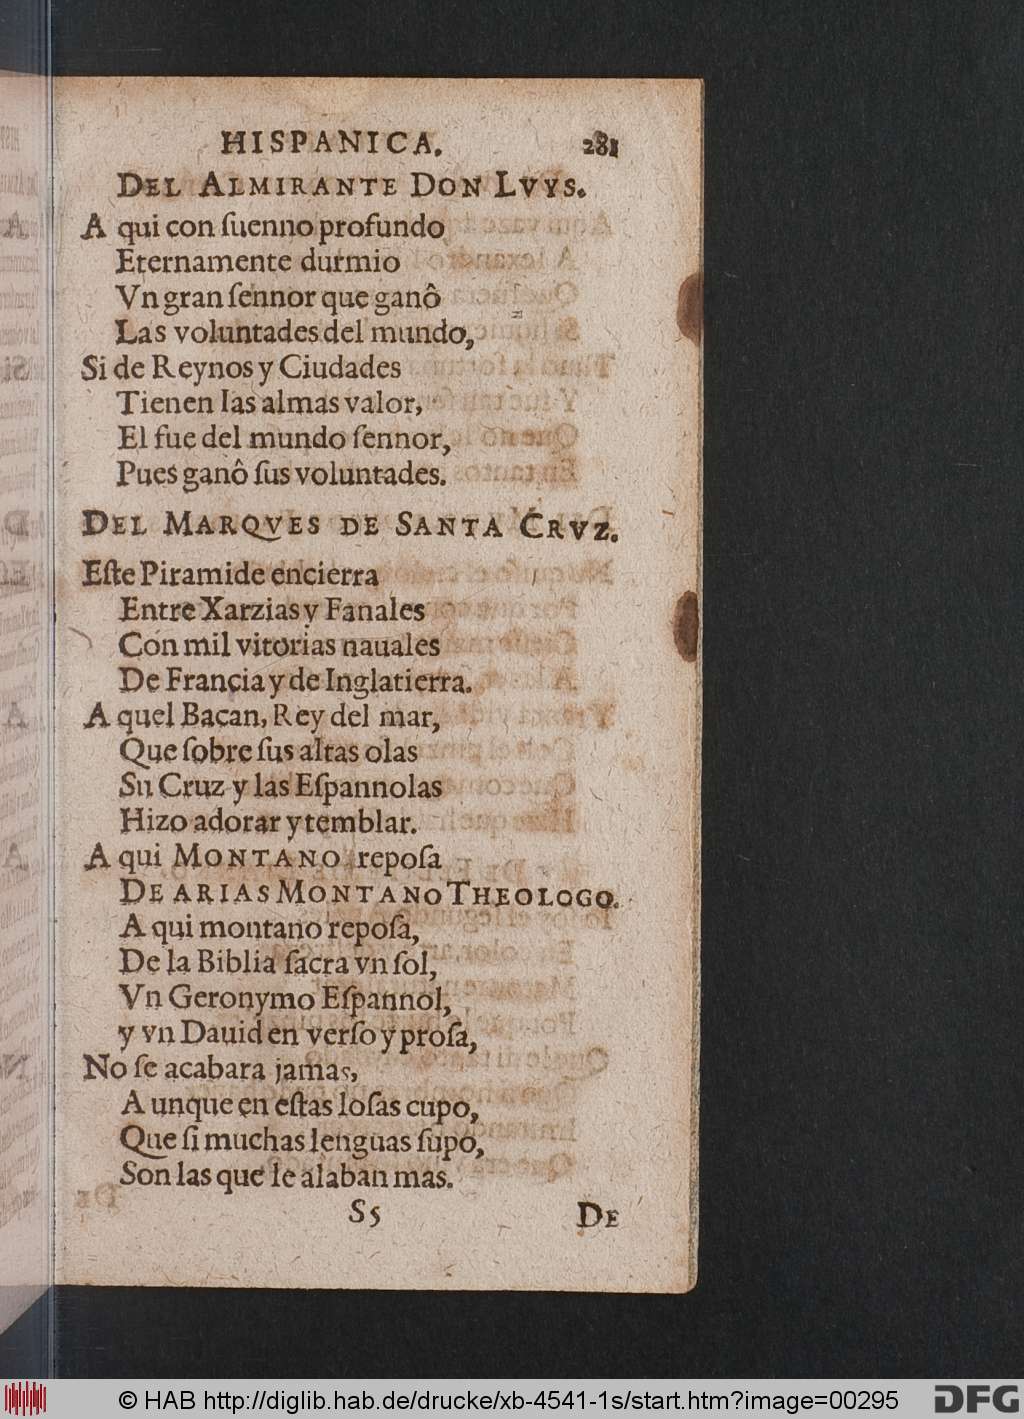 HISPANICA. 281
DEL ALMIRANTE DON LVYS.
A qui con ſuenno profundo
Eternamente durmio
Vn gran ſennor que ganô
Las voluntades del mundo,
Si de Reynos y Ciudades
Tienen las almas valor,
El fue del mundo ſennor,
Pues ganô ſus voluntades.
DEL MARQVES DE SANTA CRVZ.
Eſte Piramide encierra
Entre Xarzias y Fanales
Con mil vitorias nauales
De Francia y de Inglatierra.
A quel Bacan, Rey del mar,
Que ſobre ſus altas olas
Su Cruz y las Eſpannolas
Hizo adorar y temblar.
A qui MONTANO repoſa
DE ARIAS MONTANO THEOLOGO.
A qui montano repoſa,
De la Biblia ſacra vn ſol,
Vn Geronymo Eſpannol,
y vn Dauid en verſo y proſa,
No ſe acabara jamas,
A unque en eſtas loſas cupo,
Que ſi muchas lenguas ſupo,
Son las que le alaban mas.
S5 DE
© HAB http://diglib.hab.de/drucke/xb-4541-1s/start.htm?image=00295 DFG